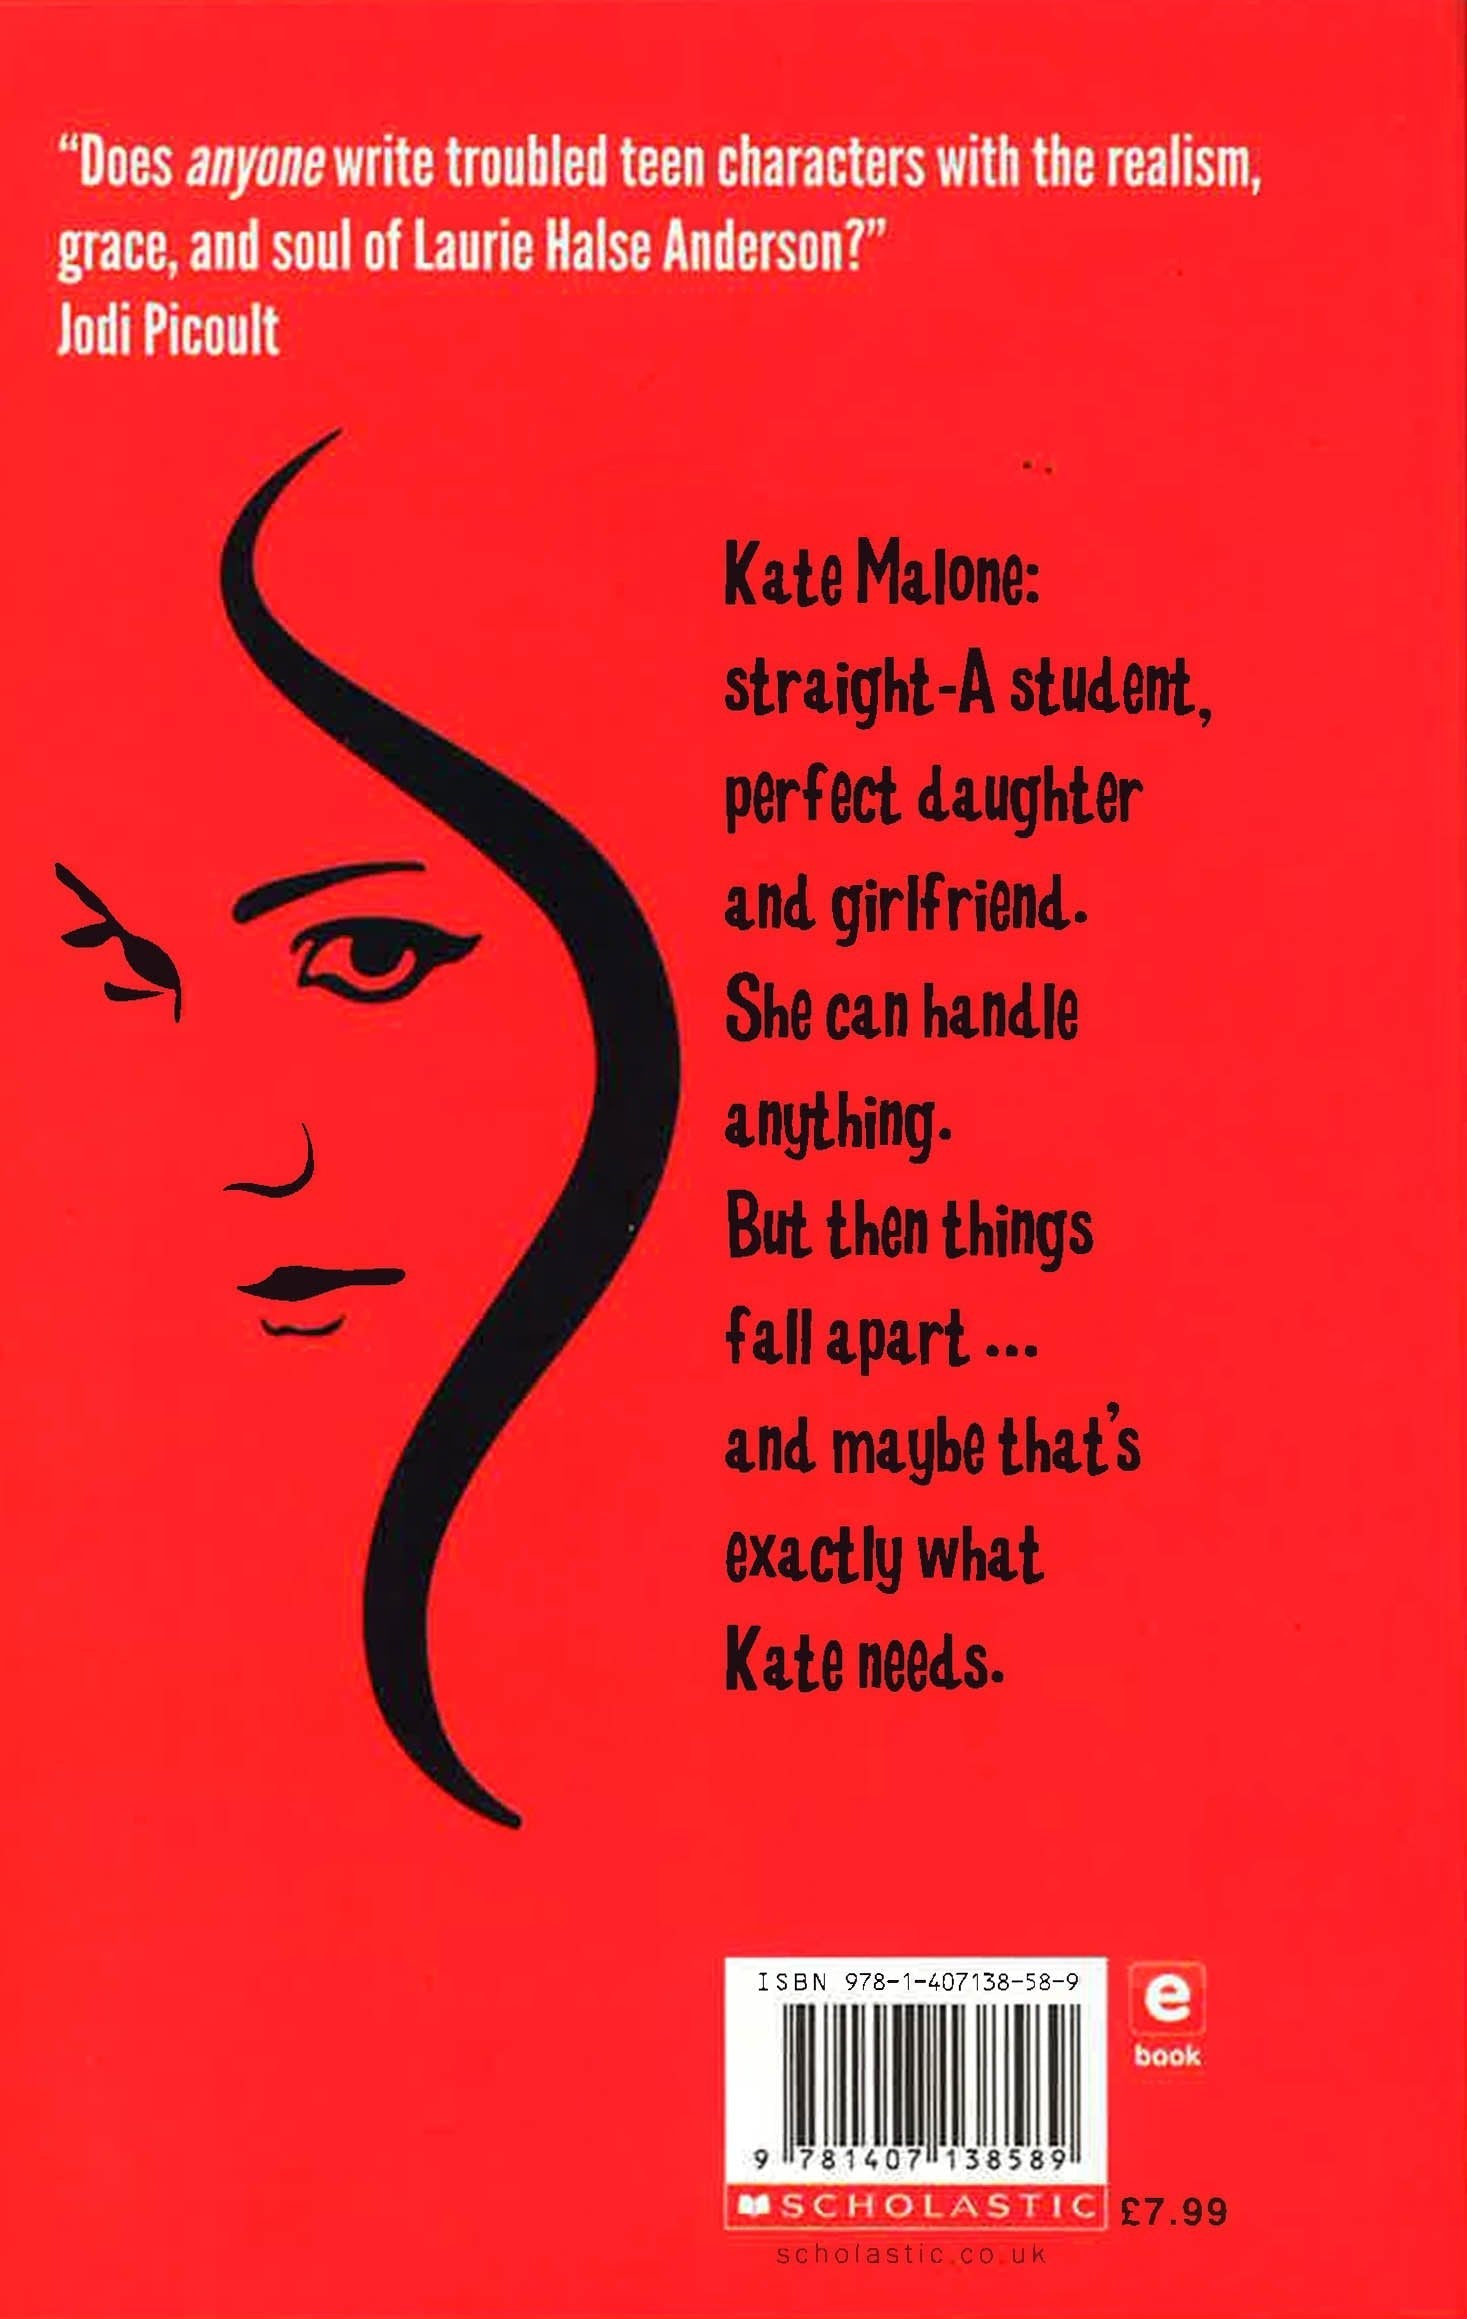 “Does anyone write troubled teen characters with the realism,
grace, and soul of Laurie Halse Anderson?”
Jodi Picoult
Kate Malone:
straight-A student,
perfect daughter
and girlfriend.
She can handle
anything.
But then things
fall apart ...
and maybe that's
exactly what
Kate needs.
ISBN 978-1-407138-58-9
9 781407 138589
e
book
SCHOLASTIC
£7.99
scholastic.co.uk